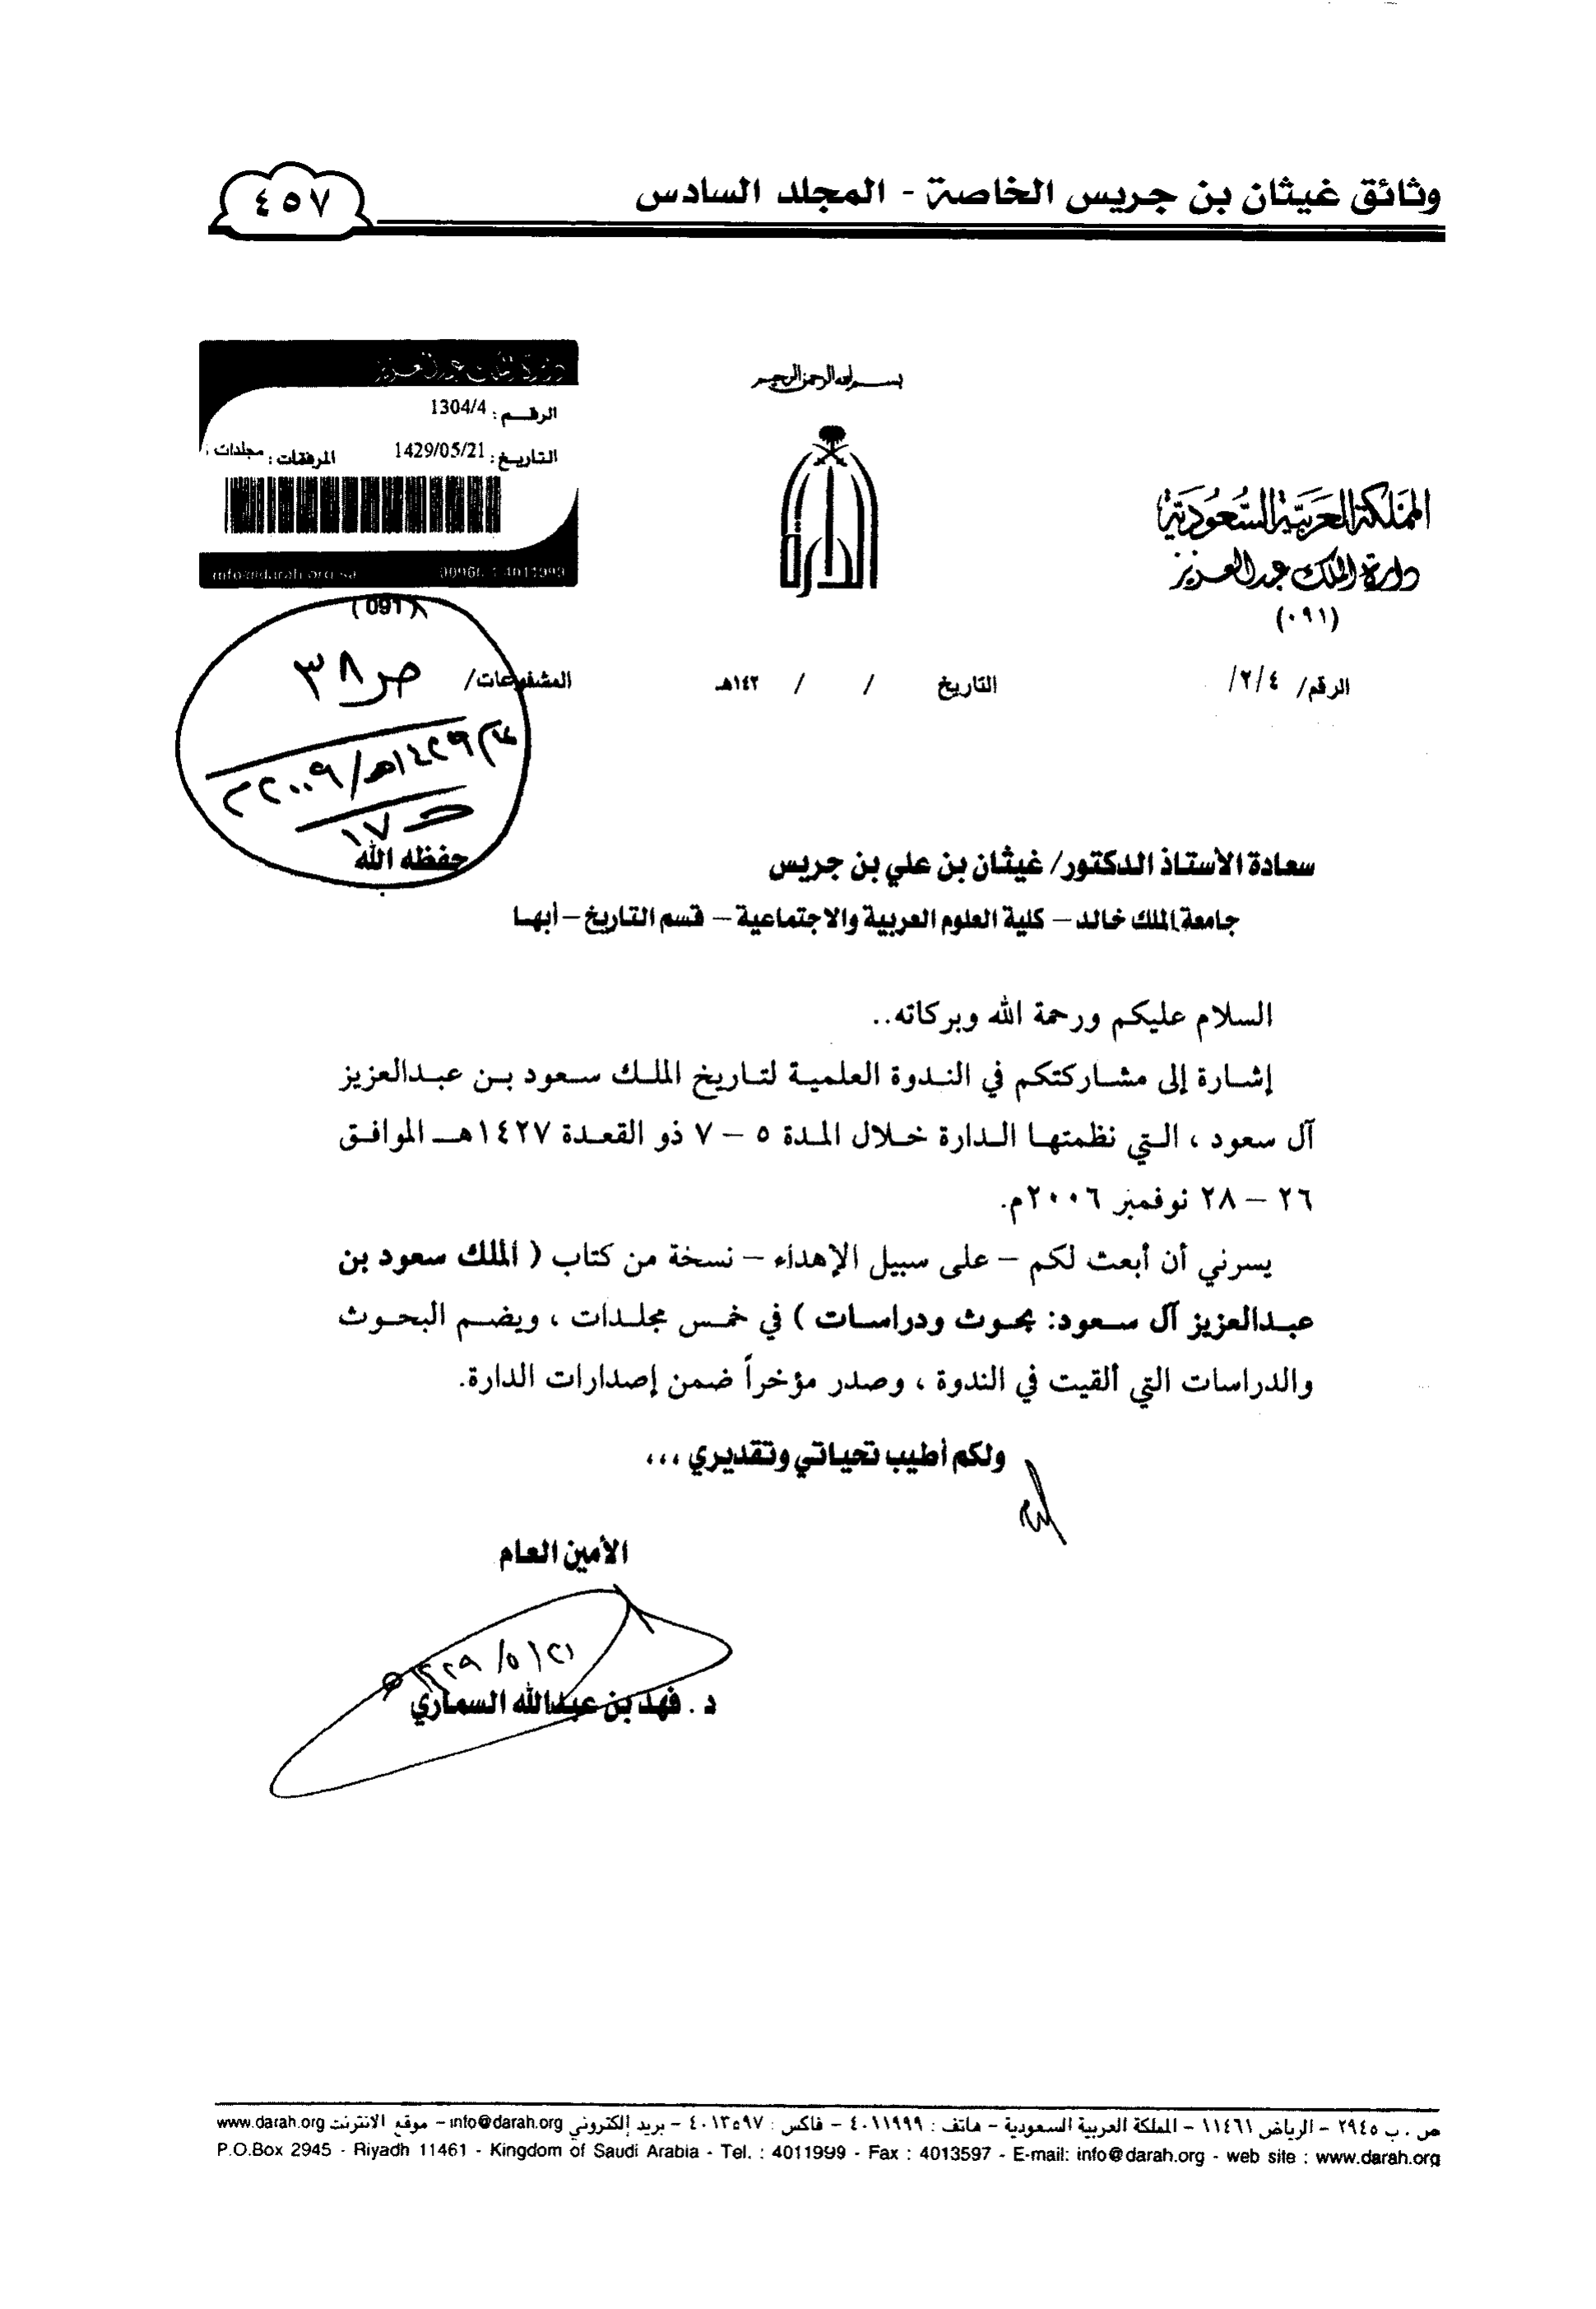 وثائق غيثان بن جريس الخاصة - المجلد السادس
٤٥٧
بسم الله الرحمن الرحيم
المملكة العربية السعودية
دارة الملك عبدالعزيز
(٠٩١)
دارة الملك عبدالعزيز
الرقم: 1304/4
التاريخ: 1429/05/21 المرفقات: مجلدات:
info@darah.org.sa 00966 1 4011999
(091)
الدارة
الرقم/ ٢/٤/
التاريخ / / ١٤٢هـ
المشفوعات/
ص ٣٨
١٤٢٩هـ/٢٠٠٩م
ج ١٧
سعادة الأستاذ الدكتور/ غيثان بن علي بن جريس حفظه الله
جامعة الملك خالد – كلية العلوم العربية والاجتماعية – قسم التاريخ – أبها
السلام عليكم ورحمة الله وبركاته..
إشارة إلى مشاركتكم في الندوة العلمية لتاريخ الملك سعود بن عبدالعزيز
آل سعود ، التي نظمتها الدارة خلال المدة ٥ – ٧ ذو القعدة ١٤٢٧هـ الموافق
٢٦ – ٢٨ نوفمبر ٢٠٠٦م.
يسرني أن أبعث لكم – على سبيل الإهداء – نسخة من كتاب ( الملك سعود بن
عبدالعزيز آل سعود: بحوث ودراسات ) في خمس مجلدات ، ويضم البحوث
والدراسات التي ألقيت في الندوة ، وصدر مؤخراً ضمن إصدارات الدارة.
ولكم أطيب تحياتي وتقديري ،،،
الأمين العام
٢١/٥/١٤٢٩
د. فهد بن عبدالله السماري
ص . ب ٢٩٤٥ - الرياض ١١٤٦١ - المملكة العربية السعودية - هاتف : ٤٠١١٩٩٩ - فاكس : ٤٠١٣٥٩٧ - بريد إلكتروني info@darah.org - موقع الانترنت www.darah.org
P.O.Box 2945 - Riyadh 11461 - Kingdom of Saudi Arabia - Tel. : 4011999 - Fax : 4013597 - E-mail: info@darah.org - web site : www.darah.org